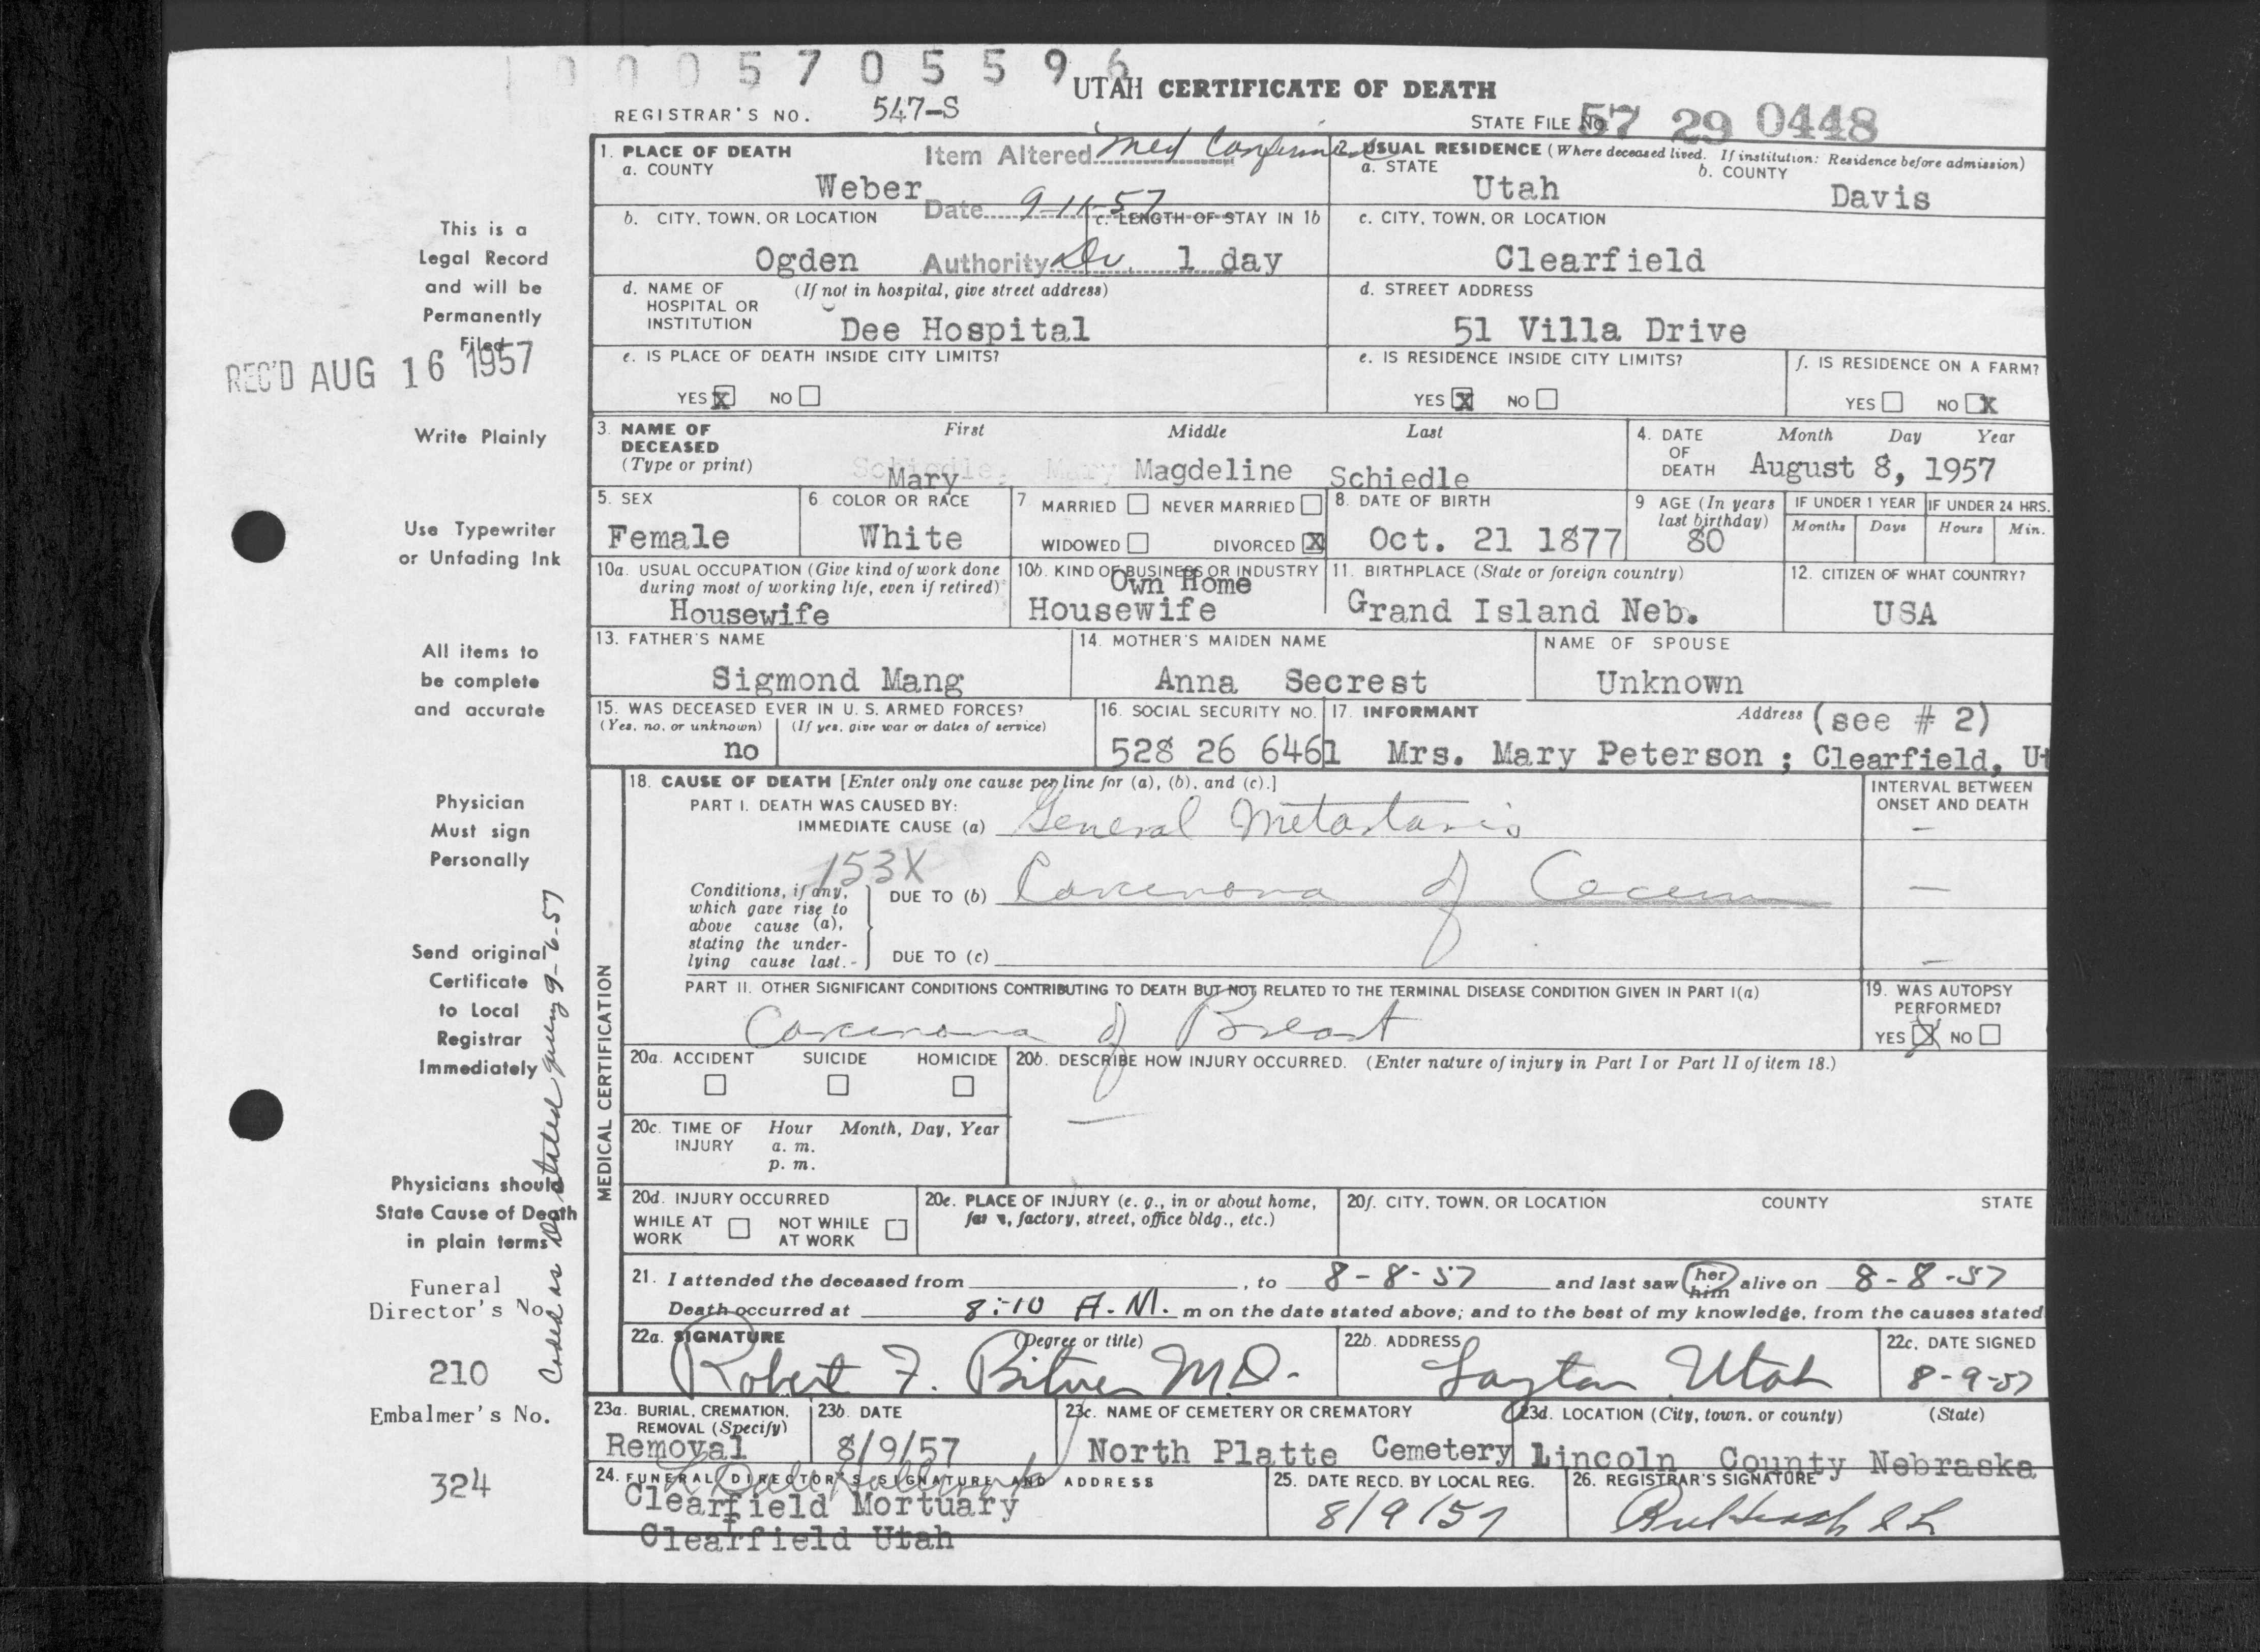 10005705596
UTAH CERTIFICATE OF DEATH
REGISTRAR'S NO. 547-S
STATE FILE NO. 57 29 0448
1. PLACE OF DEATH
a. COUNTY
Weber
Item Altered Med
Date 9-11-57
Authority Dr.
2. USUAL RESIDENCE (Where deceased lived. If institution: Residence before admission)
a. STATE
Utah
b. COUNTY
Davis
b. CITY, TOWN, OR LOCATION
Ogden
c. LENGTH OF STAY IN 1b
1 day
c. CITY, TOWN, OR LOCATION
Clearfield
d. NAME OF HOSPITAL OR INSTITUTION
(If not in hospital, give street address)
Dee Hospital
d. STREET ADDRESS
51 Villa Drive
e. IS PLACE OF DEATH INSIDE CITY LIMITS?
YES X NO
e. IS RESIDENCE INSIDE CITY LIMITS?
YES X NO
f. IS RESIDENCE ON A FARM?
YES NO X
3. NAME OF DECEASED
(Type or print)
First Middle Last
Schiedle, Mary
Mary Magdeline Schiedle
4. DATE OF DEATH
Month Day Year
August 8, 1957
5. SEX
Female
6. COLOR OR RACE
White
7 MARRIED NEVER MARRIED
WIDOWED DIVORCED X
8. DATE OF BIRTH
Oct. 21 1877
9 AGE (In years last birthday)
80
IF UNDER 1 YEAR
Months Days
IF UNDER 24 HRS.
Hours Min.
10a. USUAL OCCUPATION (Give kind of work done during most of working life, even if retired)
Housewife
10b. KIND OF BUSINESS OR INDUSTRY
Own Home
Housewife
11. BIRTHPLACE (State or foreign country)
Grand Island Neb.
12. CITIZEN OF WHAT COUNTRY?
USA
13. FATHER'S NAME
Sigmond Mang
14. MOTHER'S MAIDEN NAME
Anna Secrest
NAME OF SPOUSE
Unknown
15. WAS DECEASED EVER IN U. S. ARMED FORCES?
(Yes, no, or unknown) (If yes, give war or dates of service)
no
16. SOCIAL SECURITY NO.
528 26 6461
17. INFORMANT Address (see # 2)
Mrs. Mary Peterson ; Clearfield, Ut
18. CAUSE OF DEATH [Enter only one cause per line for (a), (b), and (c).]
INTERVAL BETWEEN ONSET AND DEATH
PART I. DEATH WAS CAUSED BY:
IMMEDIATE CAUSE (a) General Metastasis –
153X
Conditions, if any, which gave rise to above cause (a), stating the underlying cause last.
DUE TO (b) Carcinoma of Cecum –
DUE TO (c) –
PART II. OTHER SIGNIFICANT CONDITIONS CONTRIBUTING TO DEATH BUT NOT RELATED TO THE TERMINAL DISEASE CONDITION GIVEN IN PART I(a)
Carcinoma of Breast
19. WAS AUTOPSY PERFORMED?
YES X NO
20a. ACCIDENT SUICIDE HOMICIDE
20b. DESCRIBE HOW INJURY OCCURRED. (Enter nature of injury in Part I or Part II of item 18.)
–
20c. TIME OF INJURY
Hour Month, Day, Year
a. m.
p. m.
20d. INJURY OCCURRED
WHILE AT WORK NOT WHILE AT WORK
20e. PLACE OF INJURY (e. g., in or about home, farm, factory, street, office bldg., etc.)
20f. CITY, TOWN, OR LOCATION COUNTY STATE
21. I attended the deceased from , to 8-8-57 and last saw her him alive on 8-8-57
Death occurred at 8:10 A.M. m on the date stated above; and to the best of my knowledge, from the causes stated
22a. SIGNATURE (Degree or title)
Robert F. M.D.
22b. ADDRESS
Layton Utah
22c. DATE SIGNED
8-9-57
23a. BURIAL, CREMATION, REMOVAL (Specify)
Removal
23b. DATE
8/9/57
23c. NAME OF CEMETERY OR CREMATORY
North Platte Cemetery
23d. LOCATION (City, town, or county) (State)
Lincoln County Nebraska
24. FUNERAL DIRECTOR'S SIGNATURE AND ADDRESS
Clearfield Mortuary
Clearfield Utah
25. DATE RECD. BY LOCAL REG.
8/9/57
26. REGISTRAR'S SIGNATURE
MEDICAL CERTIFICATION
This is a
Legal Record
and will be
Permanently
Filed
REC'D AUG 16 1957
Write Plainly
Use Typewriter
or Unfading Ink
All items to
be complete
and accurate
Physician
Must sign
Personally
Send original
Certificate
to Local
Registrar
Immediately
Physicians should
State Cause of Death
in plain terms
Coded as Dr stated query 9-6-57
Funeral
Director's No.
210
Embalmer's No.
324